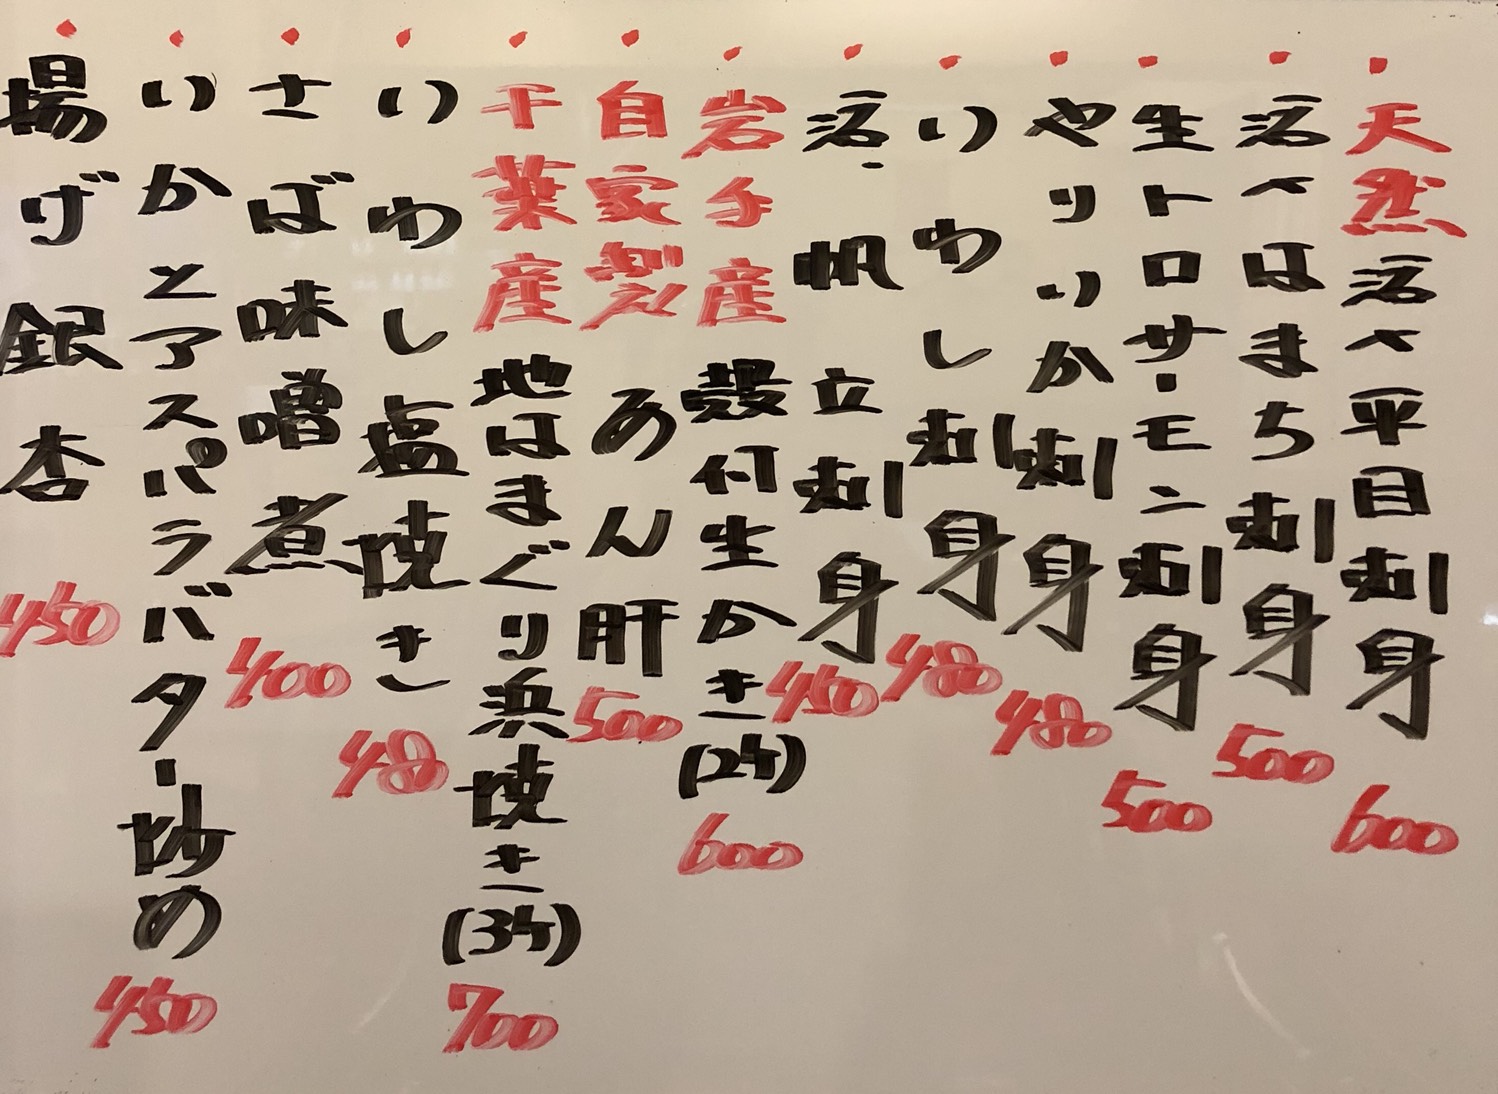 天然活〆平目刺身 600
活〆はまち刺身 500
生トロサーモン刺身 500
やりいか刺身 480
いわし刺身 480
活帆立刺身 450
岩手産殻付生かき(2ケ) 600
自家製あん肝 500
千葉産地はまぐり浜焼き(3ケ) 700
いわし塩焼き 480
さば味噌煮 400
いかとアスパラバター炒め 450
揚げ銀杏 450